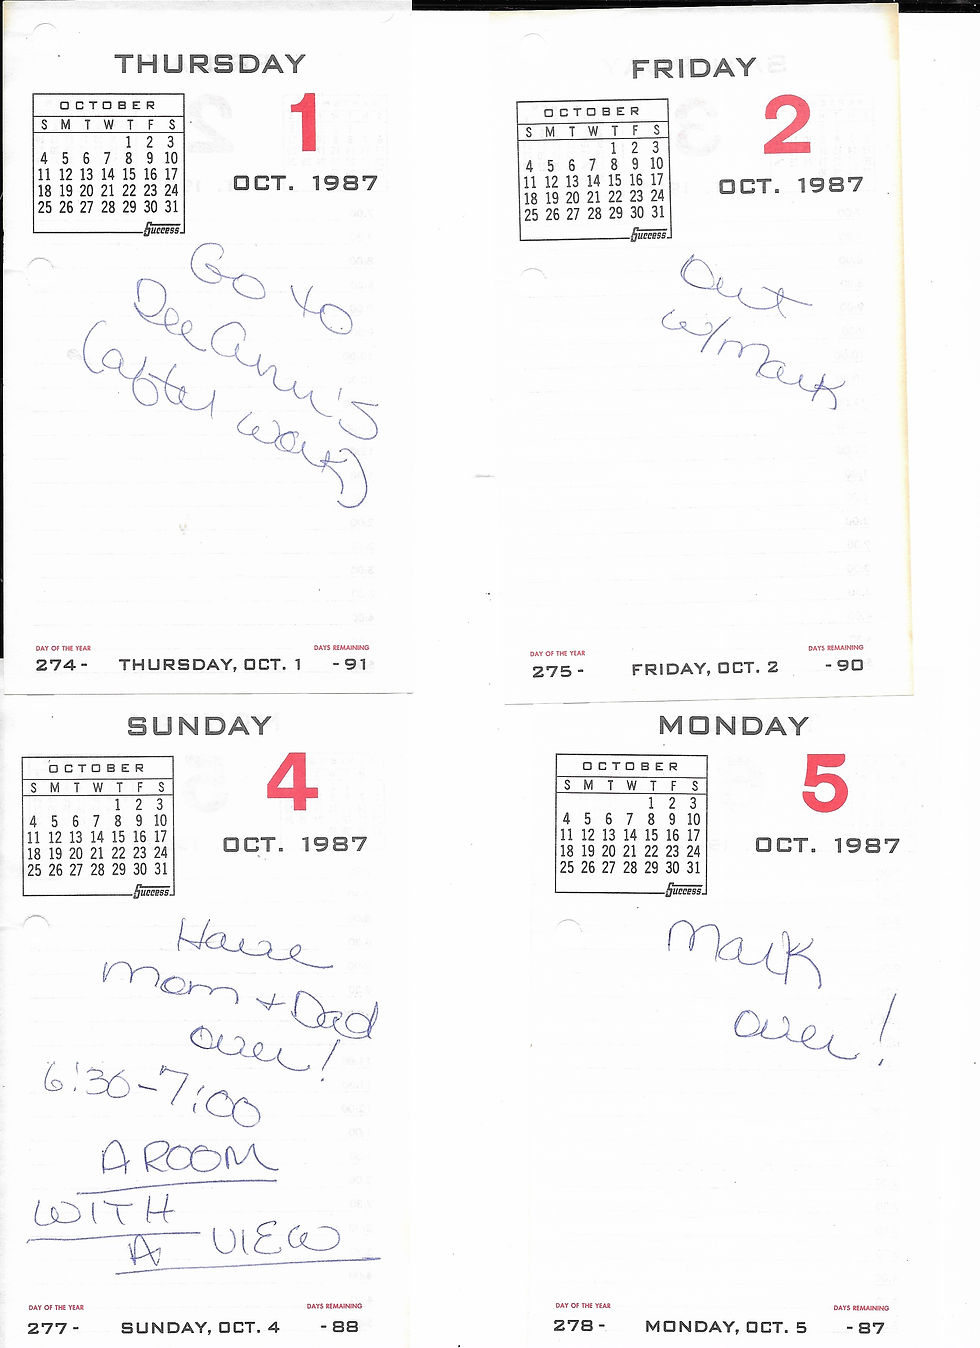 THURSDAY
OCTOBER
S M T W T F S
1 2 3
4 5 6 7 8 9 10
11 12 13 14 15 16 17
18 19 20 21 22 23 24
25 26 27 28 29 30 31
Success
1
OCT. 1987
Go to
DeeAnn's
(after work)
DAY OF THE YEAR
DAYS REMAINING
274- THURSDAY, OCT. 1 -91
FRIDAY
OCTOBER
S M T W T F S
1 2 3
4 5 6 7 8 9 10
11 12 13 14 15 16 17
18 19 20 21 22 23 24
25 26 27 28 29 30 31
Success
2
OCT. 1987
Out
w/Mark
DAY OF THE YEAR
DAYS REMAINING
275- FRIDAY, OCT. 2 -90
SUNDAY
OCTOBER
S M T W T F S
1 2 3
4 5 6 7 8 9 10
11 12 13 14 15 16 17
18 19 20 21 22 23 24
25 26 27 28 29 30 31
Success
4
OCT. 1987
Have
Mom + Dad
over!
6:30-7:00
A ROOM
WITH
A VIEW
DAY OF THE YEAR
DAYS REMAINING
277- SUNDAY, OCT. 4 -88
MONDAY
OCTOBER
S M T W T F S
1 2 3
4 5 6 7 8 9 10
11 12 13 14 15 16 17
18 19 20 21 22 23 24
25 26 27 28 29 30 31
Success
5
OCT. 1987
Mark
over!
DAY OF THE YEAR
DAYS REMAINING
278- MONDAY, OCT. 5 -87